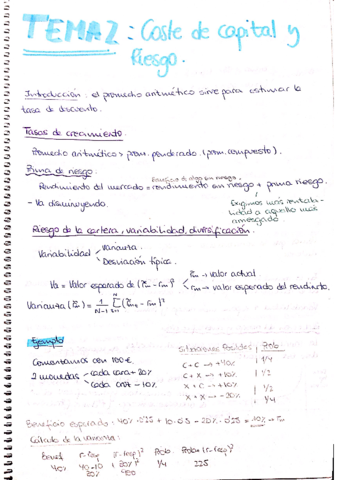 TEMA 2: Coste de capital y
Riesgo.
Introducción: el promedio aritmético sirve para estimar la
tasa de descuento.
Tasas de crecimiento.
Promedio aritmético > prom. ponderado (prom. compuesto).
Prima de riesgo.
Rendimiento del mercado = rendimiento sin riesgo + prima riesgo.
- Va disminuyendo.
Exigimos más rentabi-
lidad a aquello más
arriesgado
Riesgo de la cartera, variabilidad, diversificación.
Variabilidad
Varianza
Desviación típica.
Va = Valor esperado de (r̃m - rm)²
r̃m → valor actual
rm → valor esperado del rendimto.
Varianza (r̃m) = 1/N-1 Σ (r̃mt - rm)²
Ejemplo
Comenzamos con 100€.
2 monedas
cada cara + 20%
cada cruz - 10%
Situaciones Posibles Prob
C + C → +40% 1/4
C + X → +10% 1/2
X + C → +10%
X + X → -20% 1/4
Beneficio esperado: 40% · 0'25 + 10 · 0'5 - 20% · 0'25 = 10% → rm
Cálculo de la varianza:
Benef r-resp (r-resp)² Prob Prob·(r-resp)²
40% 40-10 1/4 225